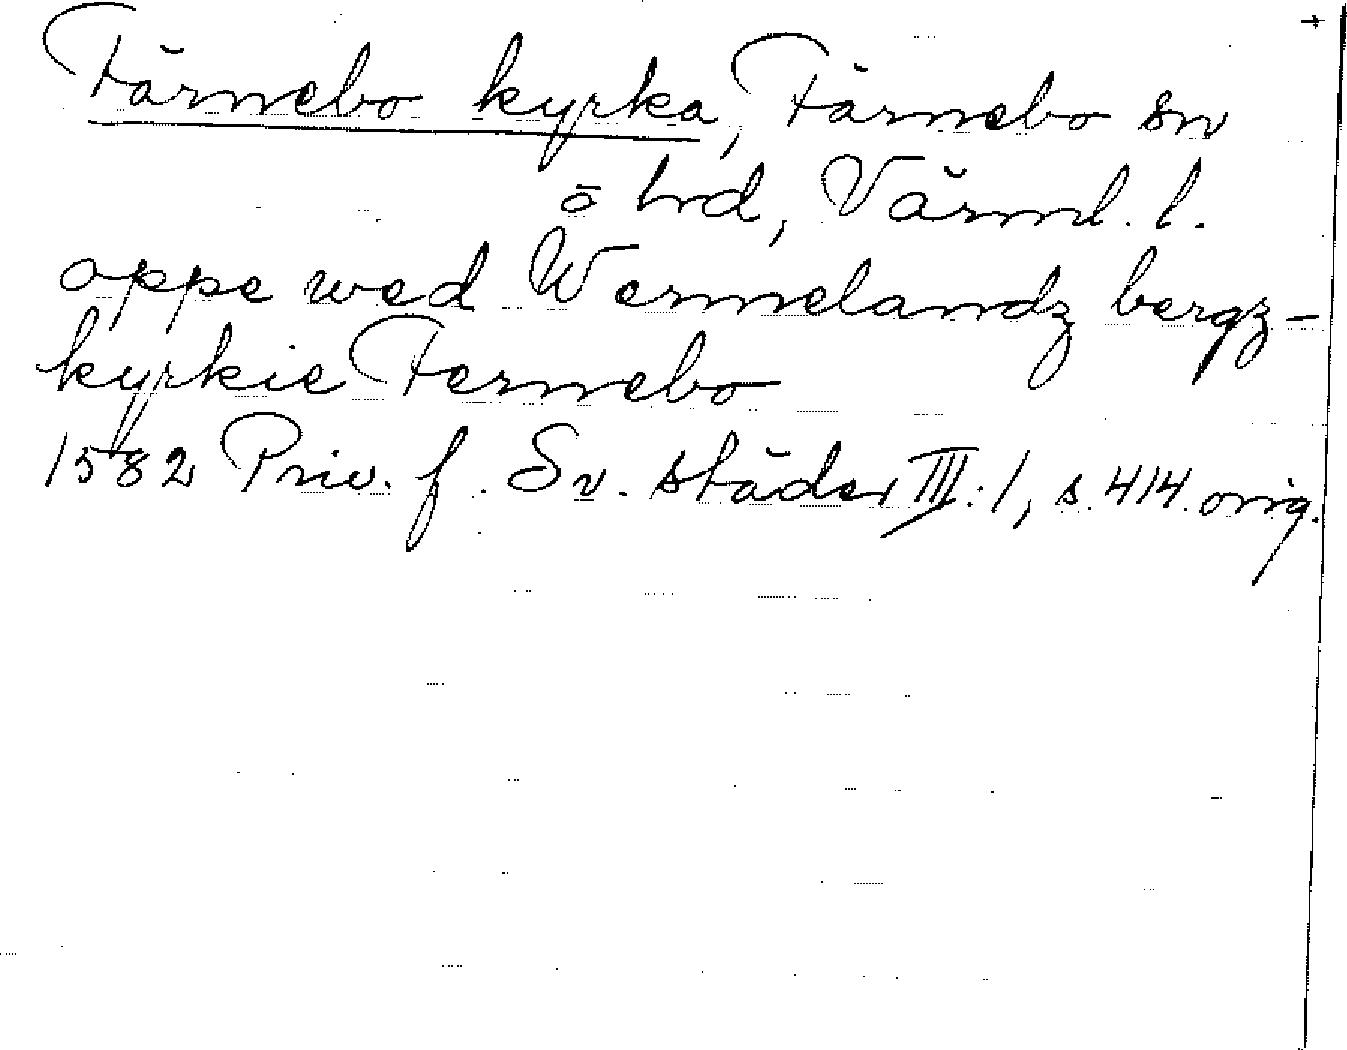 Färnebo kyrka, Färnebo sn
o hrd, Värml. l.
oppe wed Wermelandz bergz-
kyrkie Fernebo
1582 Priv. f. Sv. städer III:1, s. 414. orig.